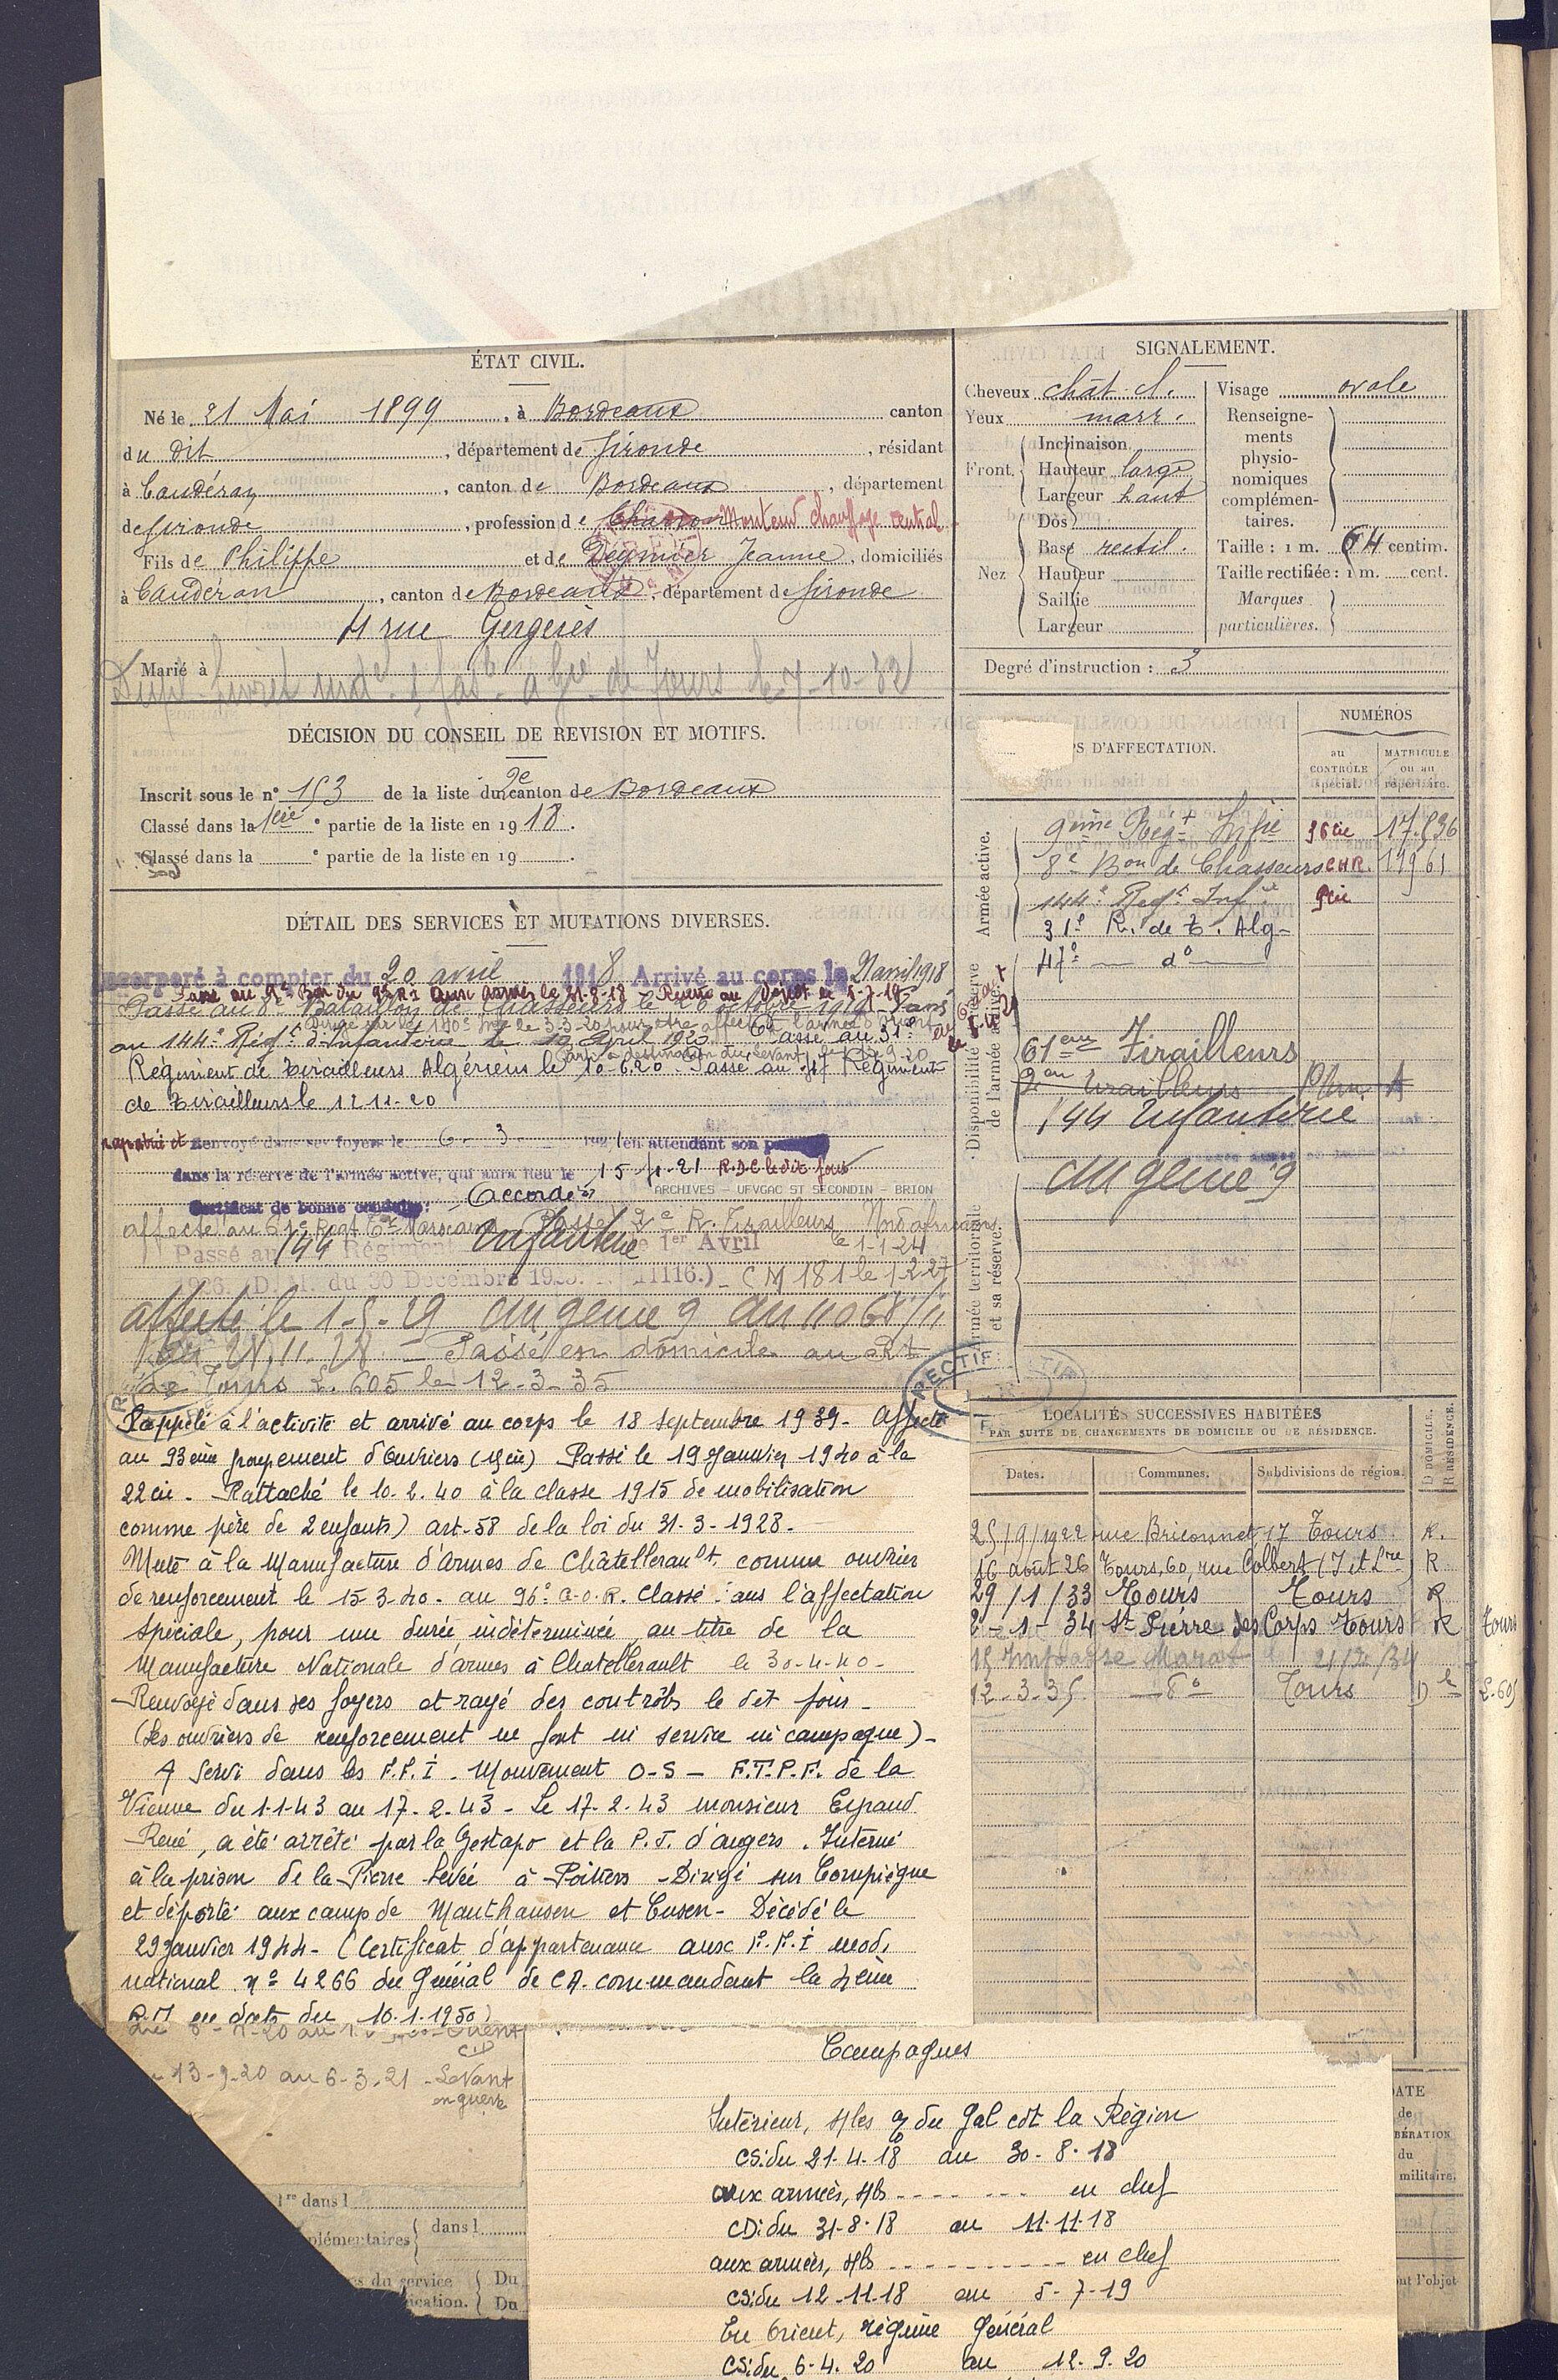 ÉTAT CIVIL.
Né le 21 Mai 1899, à Bordeaux canton
du dit, département de Gironde, résidant
à Caudéran, canton de Bordeaux, département
de Gironde, profession de Charron Monteur chauffage central
Fils de Philippe et de Deymier Jeanne, domiciliés
à Caudéran, canton de Bordeaux, département de Gironde
11 rue Gergerès
Marié à
a de Tours le 7-10-32
DÉCISION DU CONSEIL DE REVISION ET MOTIFS.
Inscrit sous le n° 153 de la liste du 2e canton de Bordeaux
Classé dans la 1ère e partie de la liste en 1918.
Classé dans la e partie de la liste en 19 .
DÉTAIL DES SERVICES ET MUTATIONS DIVERSES.
Incorporé à compter du 20 avril 1918 Arrivé au corps le 21 avril 1918
Passé au 8e Bataillon de Chasseurs le 26 octobre 1919 Passé
au 144e Régt d'Infanterie le 10 Avril 1920 Passé au 31e
Régiment de Tirailleurs Algériens le 10-6-20 - Passé au 47 Régiment
de Tirailleurs le 12 11-20
rapatrié et Renvoyé dans ses foyers le 6-3- en attendant son passage
dans la réserve de l'armée active, qui aura lieu le 15-4-21 R.D.C le dit jour
Certificat de bonne conduite: Accordé
ARCHIVES – UFVGAC ST SECONDIN – BRION
affecté au 61e Régt Marocains Passé 2e R. Tirailleurs Nord africains
Passé au 144 Régiment Infanterie le 1er Avril le 1-1-24
1926. (D. M. du 30 Décembre 11116.) - CM 181 le 1 2 27
affecté le 1-5-29 au génie 9
du 28.11.28 - Passé en domicile au Rt
de Tours L. 605 le 12-3-35
Rappelé à l'activité et arrivé au corps le 18 septembre 1939 - Affecté
au 93ème groupement d'Ouvriers Passé le 19 Janvier 1940 à la
22 cie - Rattaché le 10.2.40 à la classe 1915 de mobilisation
comme père de 2 enfants) art-58 de la loi du 31-3-1928 -
Muté à la Manufacture d'Armes de Châtellerault comme ouvrier
de renforcement le 15-3-40. au 96e C.O.R. Classé dans l'affectation
spéciale, pour une durée indéterminée, au titre de la
Manufacture Nationale d'armes à Chatellerault le 30-4-40 -
Renvoyé dans ses foyers et rayé des contrôles le dit jour -
(Les ouvriers de renforcement ne font ni service ni campagne) -
A Servi dans les F.F.I - Mouvement O-S - F.T.P.F. de la
Vienne du 1-1-43 au 17-2-43 - Le 17-2-43 monsieur Eyraud
René, a été arrêté par la Gestapo et la P.J. d'angers. Interné
à la prison de la Pierre Levée à Poitiers - Dirigé sur Compiègne
et déporté aux camp de Mauthausen et Gusen - Décédé le
29 Janvier 1944 - (Certificat d'appartenance aux F.F.I mod.
national n° 4266 du Général de CA. commandant la 4ème
R.M en date du 10.1.1950)
13-9-20 au 6-3-21 - Levant
en guerre
SIGNALEMENT.
Cheveux chât. cl.
Yeux marr.
Front. Inclinaison
Hauteur large
Largeur haut
Nez Dos
Base rectil.
Hauteur
Saillie
Largeur
Visage ovale
Renseignements physionomiques complémentaires.
Taille : 1 m. 64 centim.
Taille rectifiée : 1 m. cent.
Marques particulières.
Degré d'instruction : 3
S D'AFFECTATION.
NUMÉROS
au CONTRÔLE spécial.
MATRICULE ou au répertoire.
Armée active.
9ème Régt Infie 36 cie 17.536
8e Bon de Chasseurs CHR. 11961
144e Régt Infie 9 cie
31e R. de T. Alg-
47e — do —
Disponibilité et réserve de l'armée active.
61 au Tirailleurs
2 au tirailleurs
144 Infanterie
au génie 9
Armée territoriale et sa réserve.
RECTIF
LOCALITÉS SUCCESSIVES HABITÉES
PAR SUITE DE CHANGEMENTS DE DOMICILE OU DE RÉSIDENCE.
Dates. Communes. Subdivisions de région. D DOMICILE. R RÉSIDENCE.
25/9/1922 rue Briconnet 17 Tours R.
16 août 26 Tours, 60, rue Colbert (I et Lre R
29/1/33 Tours Tours R
2-1-34 St Pierre des Corps Tours R Tours
15 Impasse Marat 21/2/34
12-3-35 — do Tours D L-605
Campagnes
Intérieur, s/les o du Gal cdt la Région
CS: du 21-4-18 au 30-8-18
aux armées, s/ls - - - - - - - en chef
CD: du 31-8-18 au 11-11-18
aux armées, s/ls - - - - - - - en chef
CS: du 12-11-18 au 5-7-19
En Orient, régime Général
CS: du 6-4-20 au 12-9-20
1re dans l
plémentaires dans l
s du service Du
ication. Du
DATE
de
BÉRATION
du
militaire.
nt l'objet